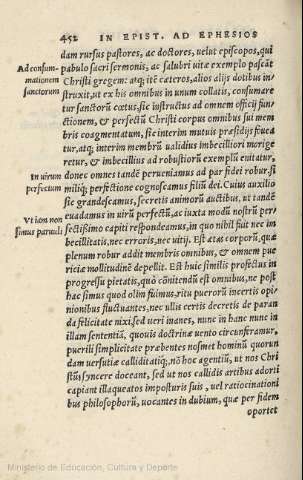 452 IN EPIST. AD EPHESIOS
dam rursus pastores, ac doctores, uelut episcopos, qui
Ad consum- pabulo sacri sermonis, ac salubri uitæ exemplo pascāt
mationem Christi gregem: atq; itē cæteros, alios alijs dotibus in⸗
sanctorum struxit, ut ex his omnibus in unum collatis, consumare
tur sanctorū cœtus, sic instructus ad omnem officij fun⸗
ctionem, & perfectū Christi corpus omnibus sui mem
bris coagmentatum, sic interim mutuis præsidijs fouea
tur, atq; interim membrū ualidius imbecilliori morige
retur, & imbecillius ad robustioris exemplū enitatur,
In uirum donec omnes tandē perueniamus ad par fidei robur, si
perfectum miliq; perfectione cognoscamus filiū dei. Cuius auxilio
sic grandescamus, secretis animorū auctibus, ut tandē
Vt iam non euadamus in uirū perfectū, ac iuxta modū nostrū per⸗
simus paruuli fectissimo capiti respondeamus, in quo nihil fuit nec im
becillitatis, nec erroris, nec uitij. Est ætas corporū, quæ
plenum robur addit membris omnibus, & omnem pue
riciæ mollitudinē depellit. Est huic similis profectus in
progressu pietatis, quò cōnitendū est omnibus, ne post
hac simus quod olim fuimus, ritu puerorū incertis opi⸗
nionibus fluctuantes, nec ullis certis decretis de paran
da felicitate nixi, sed ueri inanes, nunc in hanc nunc in
illam sententiā, quouis doctrinæ uento circunferamur,
puerili simplicitate præbentes nosmet hominū quorun
dam uersutiæ calliditatiq;, nō hoc agentiū, ut nos Chri
stū syncere doceant, sed ut nos callidis artibus adorti
capiant illaqueatos imposturis suis, uel ratiocinationi
bus philosophorū, uocantes in dubium, quæ per fidem
oportet
Ministerio de Educación, Cultura y Deporte